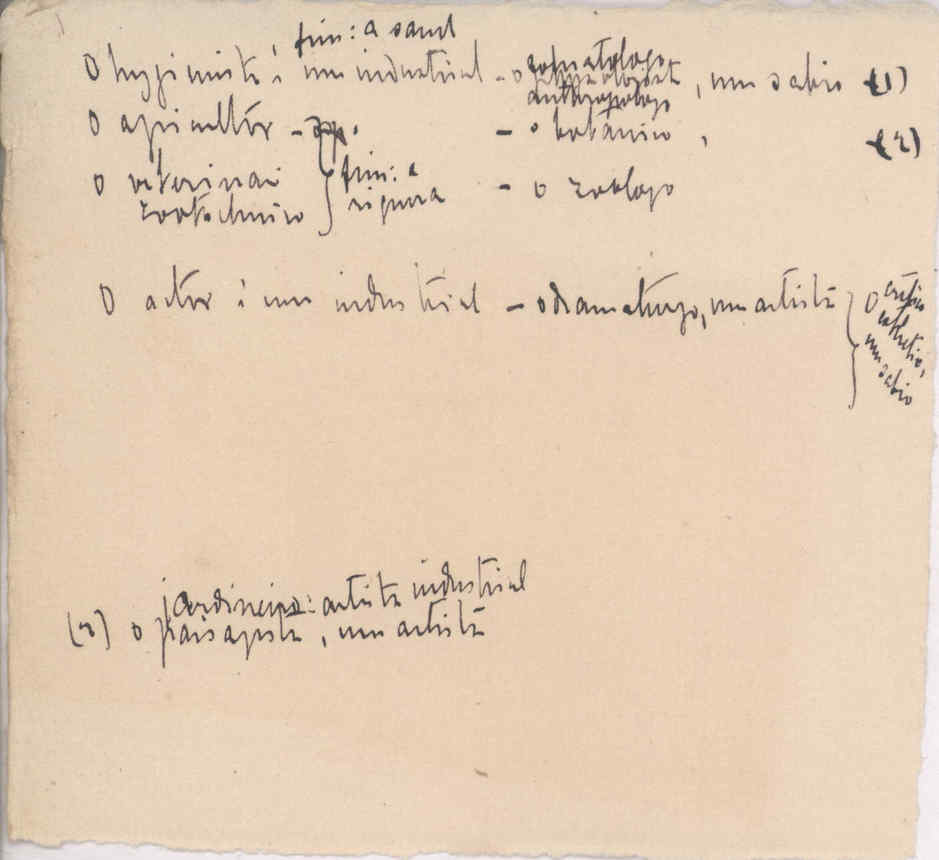 fim: a saud
O hygienista é um industrial – o somatologo
anthropologo, um sabio (1)
O agricultor – – o botanico, (2)
O veterinari } fim: a
zootechnico riqueza – o zoologo
O actor é um industrial – o dramaturgo, um artista } O critico
esthetico,
um sabio
jardineiro: artista industrial
(2) o paisagista, um artista